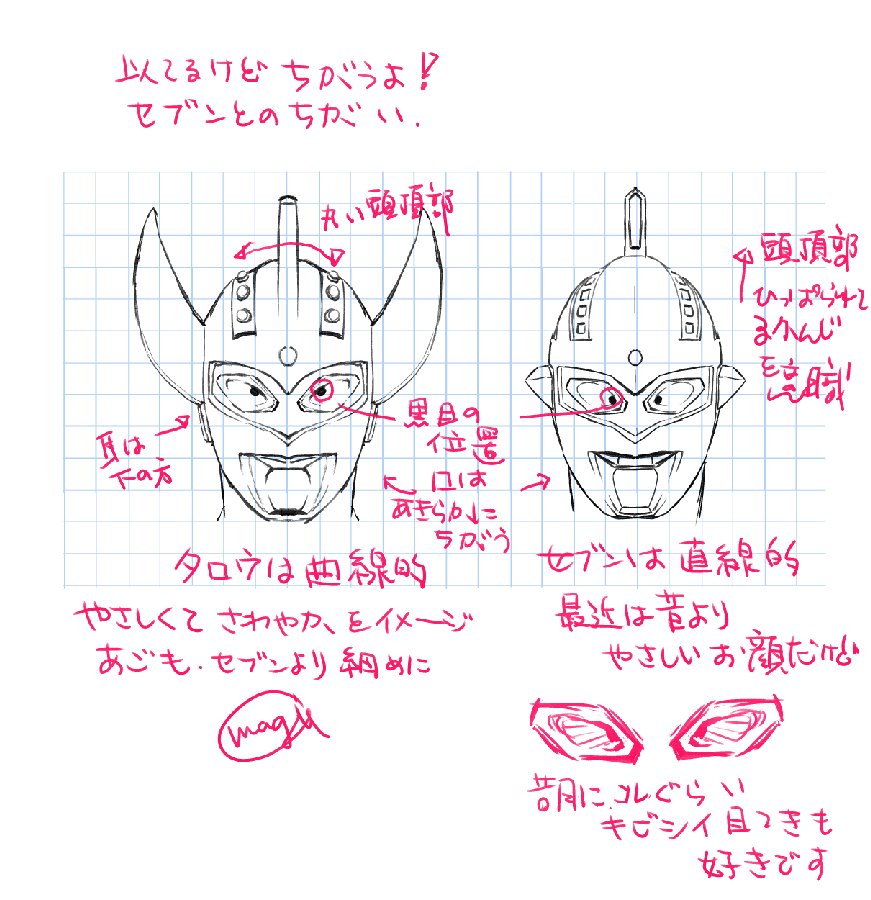 似てるけど ちがうよ!
セブンとのちがい.
丸い頭頂部
頭頂部
ひっぱられて
るかんじ
を意識
黒目の
位置
耳は
下の方
口は
あきらかに
ちがう
タロウは曲線的
やさしくて さわやか、をイメージ
あごも.セブンより細めに
magu
セブンは直線的
最近は昔より
やさしいお顔だけど
昔の
コレぐらい
キビシイ目つきも
好きです